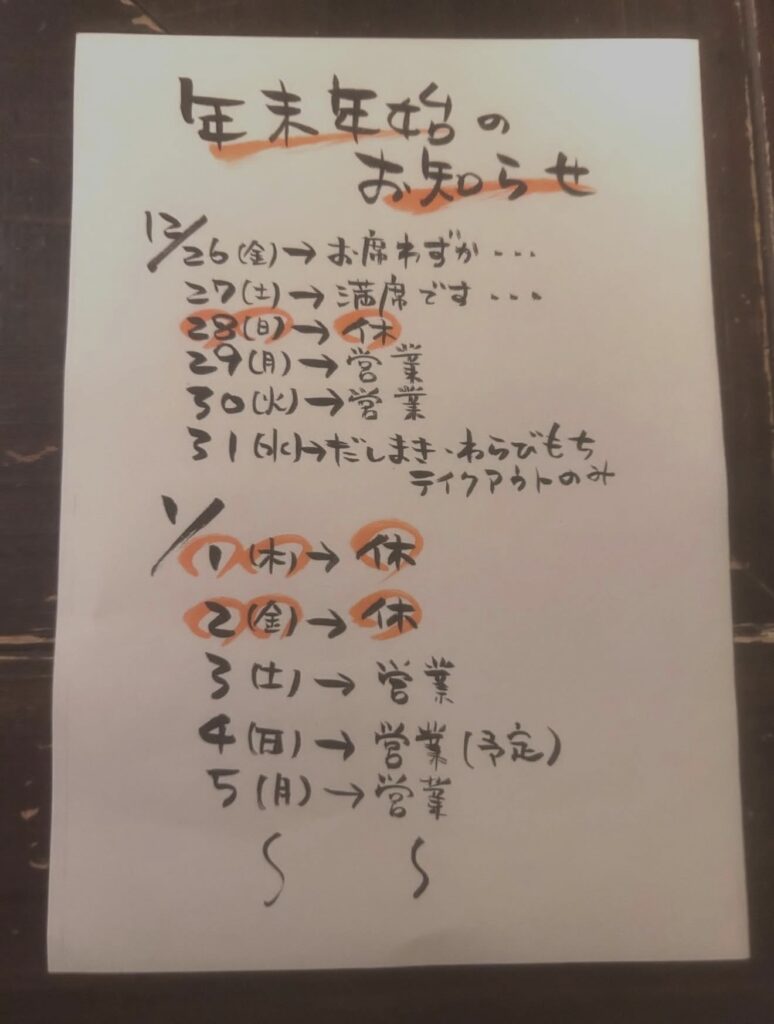 年末年始の
お知らせ
12/26(金)→お席わずか...
27(土)→満席です...
28(日)→休
29(月)→営業
30(火)→営業
31(水)→だしまき・わらびもち
テイクアウトのみ
1/1(木)→休
2(金)→休
3(土)→営業
4(日)→営業(予定)
5(月)→営業
〜 〜